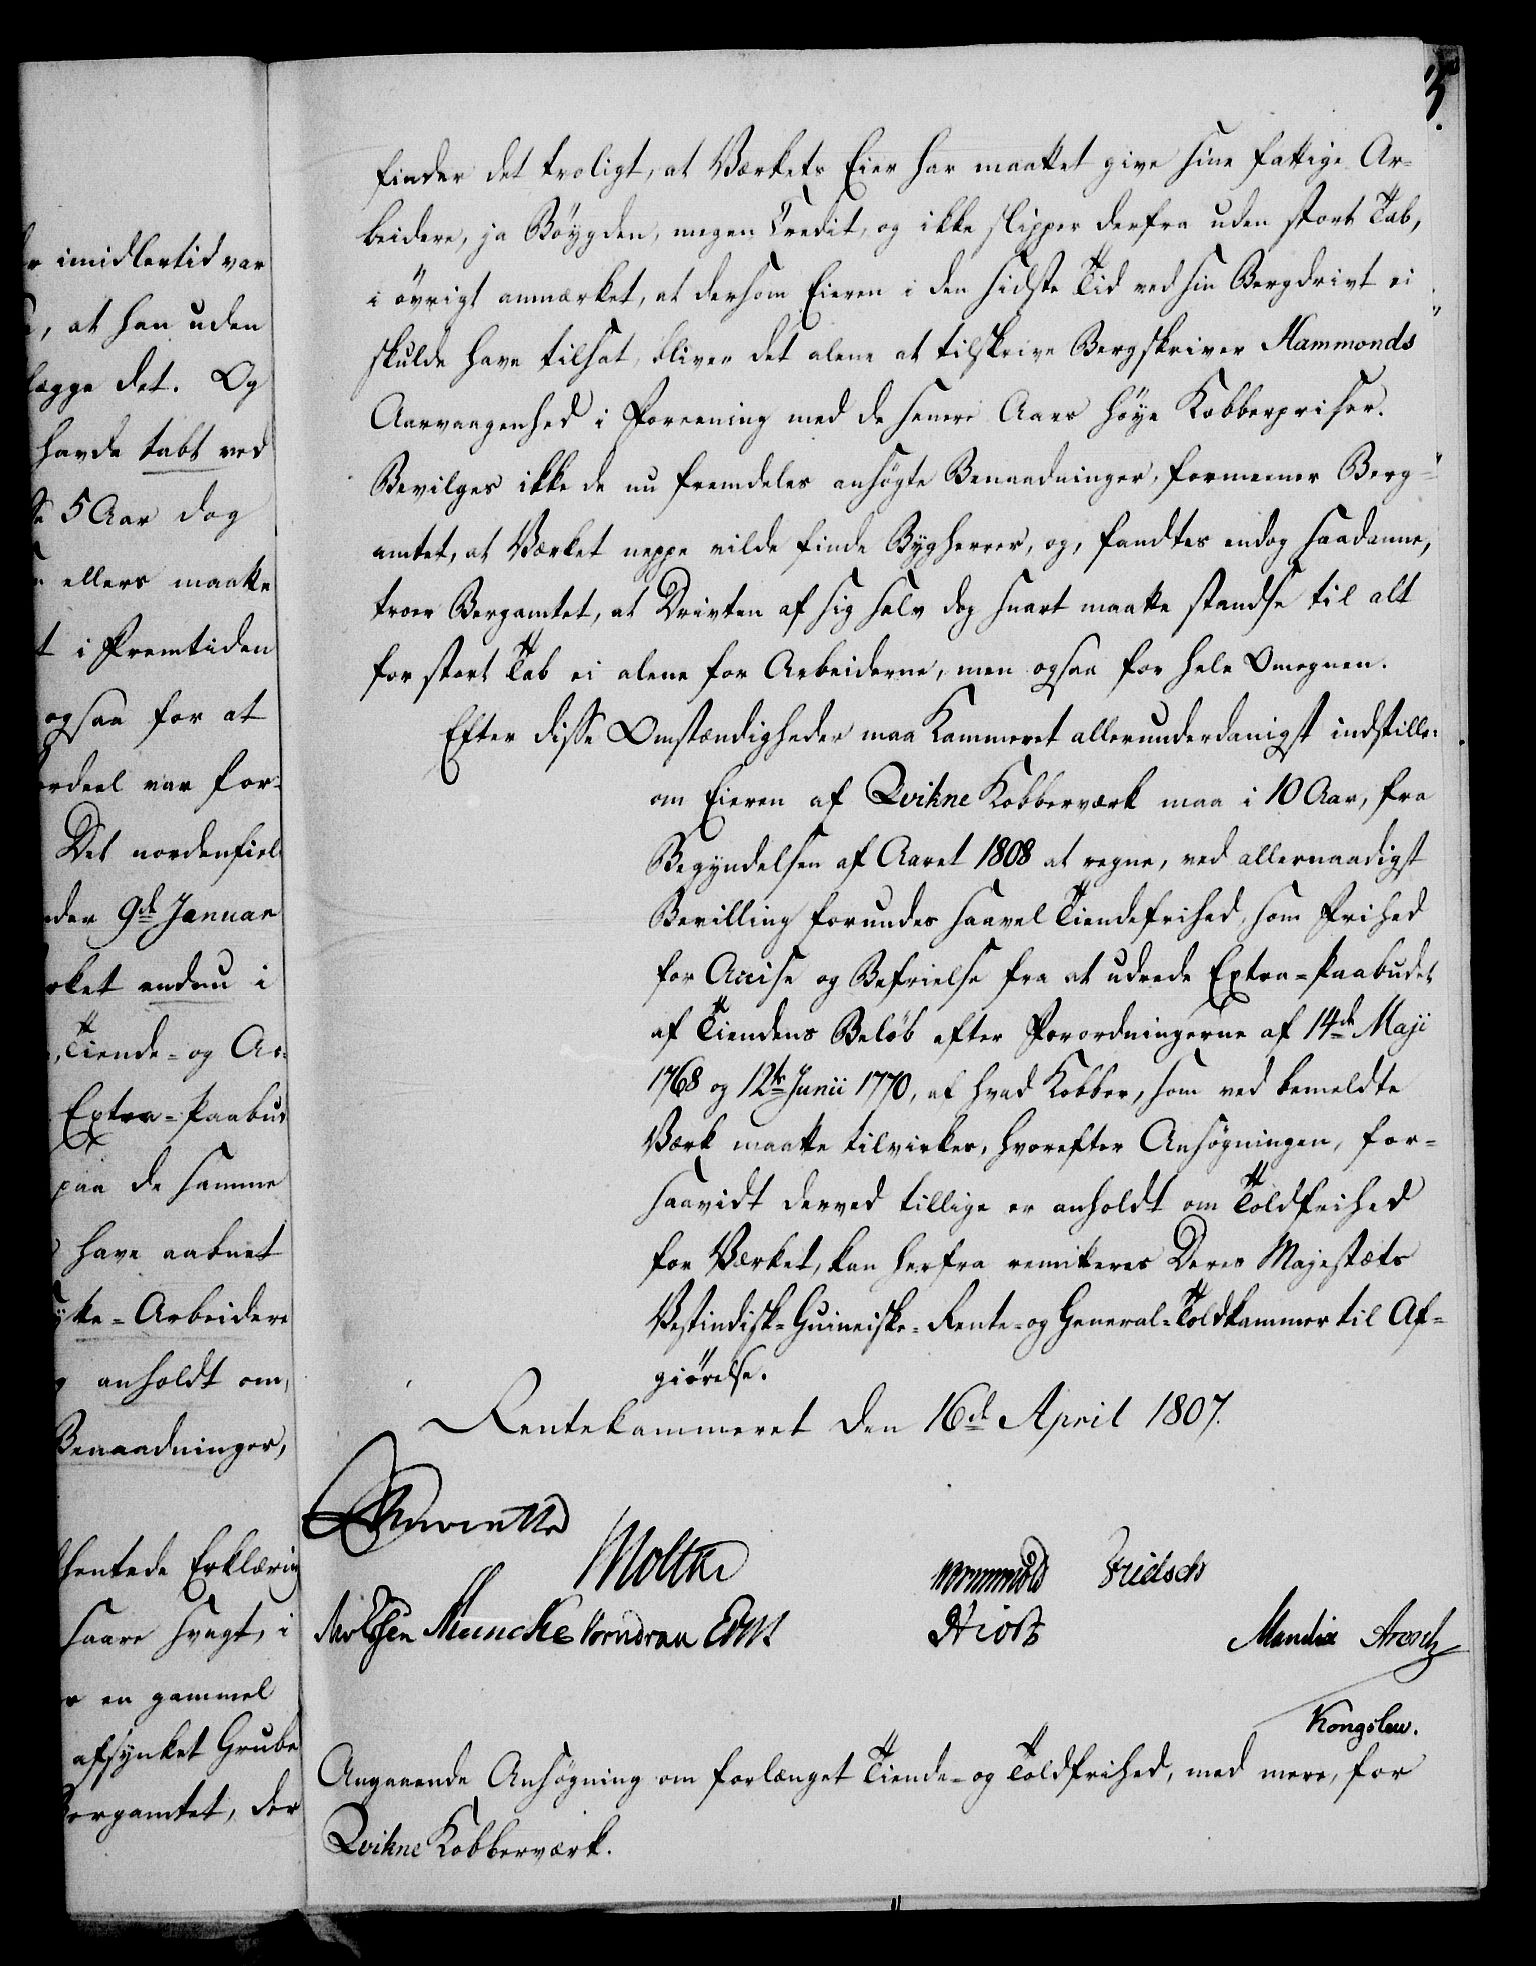 r imidlertid var
, at han uden
lægge det. Og
havde tabt ved
5 Aar dog
ellers maatte
t i Fremtiden
ogsaa for at
ordeel var for-
Det nordenfiel
nder 9de Januar
rket endnu i
, Tiende- og Ac-
Extra-Paabud
paa de samme
have aabnet
ke-Arbeidere
anholdt om,
Benaadninger,
hentede Erklæring
saare svagt, i
en gammel
afsynket Grube
Bergamtet, der
finder det troligt, at Værkets Eier har maattet give sine fattige Ar-
beidere, ja Böygden, megen Credit, og ikke slipper derfra uden stort Tab,
i övrigt anmærket, at dersom Eieren i den sidste Tid ved sin Bergdrivt ei
skulde have tilsat, bliver det alene at tilskrive Bergskriver Hammonds
Aarvaagenhed i Foreening med de senere Aars höye Kobberpriser.
Bevilges ikke de nu fremdeles ansögte Benaadninger, formeener Berg-
amtet, at Værket neppe vilde finde Bygherrer, og, fandtes endog saadanne,
troer Bergamtet, at Drivten af sig selv dog snart maatte standse til alt
for stort Tab ei alene for Arbeiderne, men ogsaa for hele Omegnen.
Efter disse Omstændigheder maa Kammeret allerunderdanigst indstille:
om Eieren af Qvikne Kobberværk maa i 10 Aar, fra
Begyndelsen af Aaret 1808 at regne, ved allernaadigst
Bevilling forundes saavel Tiendefrihed, som Frihed
for Accise og Befrielse fra at udrede Extra-Paabudet
af Tiendens Belöb efter Forordningerne af 14de Maji
1768 og 12te Junii 1770, af hvad Kobber, som ved bemeldte
Værk maatte tilvirkes, hvorefter Ansögningen, for-
saavidt derved tillige er anholdt om Toldfrihed
for Værket, kan herfra remitteres Deres Majestæts
Vestindisk-Guineiske-Rente- og General-Toldkammer til Af-
giörelse.
Rentekammeret den 16de April 1807.
Moltke
Wormskiold Fridsch
Muncke Vorndran
Hiort
Mandix
Kongslew.
Angaaende Ansögning om forlænget Tiende- og Toldfrihed, med mere, for
Qvikne Kobberværk.